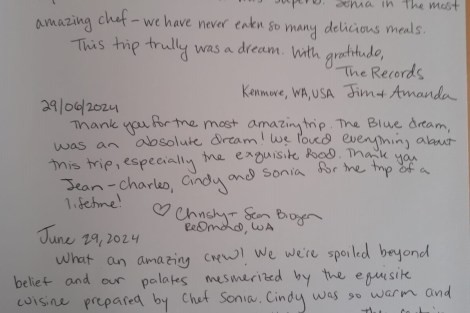 superb. Sonia in the most
amazing chef - we have never eaten so many delicious meals.
This trip trully was a dream. With gratitude,
The Records
Kenmore, WA, USA Jim + Amanda
29/06/2024
Thank you for the most amazing trip. The Blue dream,
was an absolute dream! We loved everything about
this trip, especially the exquisite food. Thank you
Jean-Charles, Cindy and Sonia for the trip of a
lifetime!
♡ Christy + Sean
Redmond, WA
June 29, 2024
What an amazing crew! We we're spoiled beyond
belief and our palates mesmerized by the equisite
cuisine prepared by Chef Sonia. Cindy was so warm and